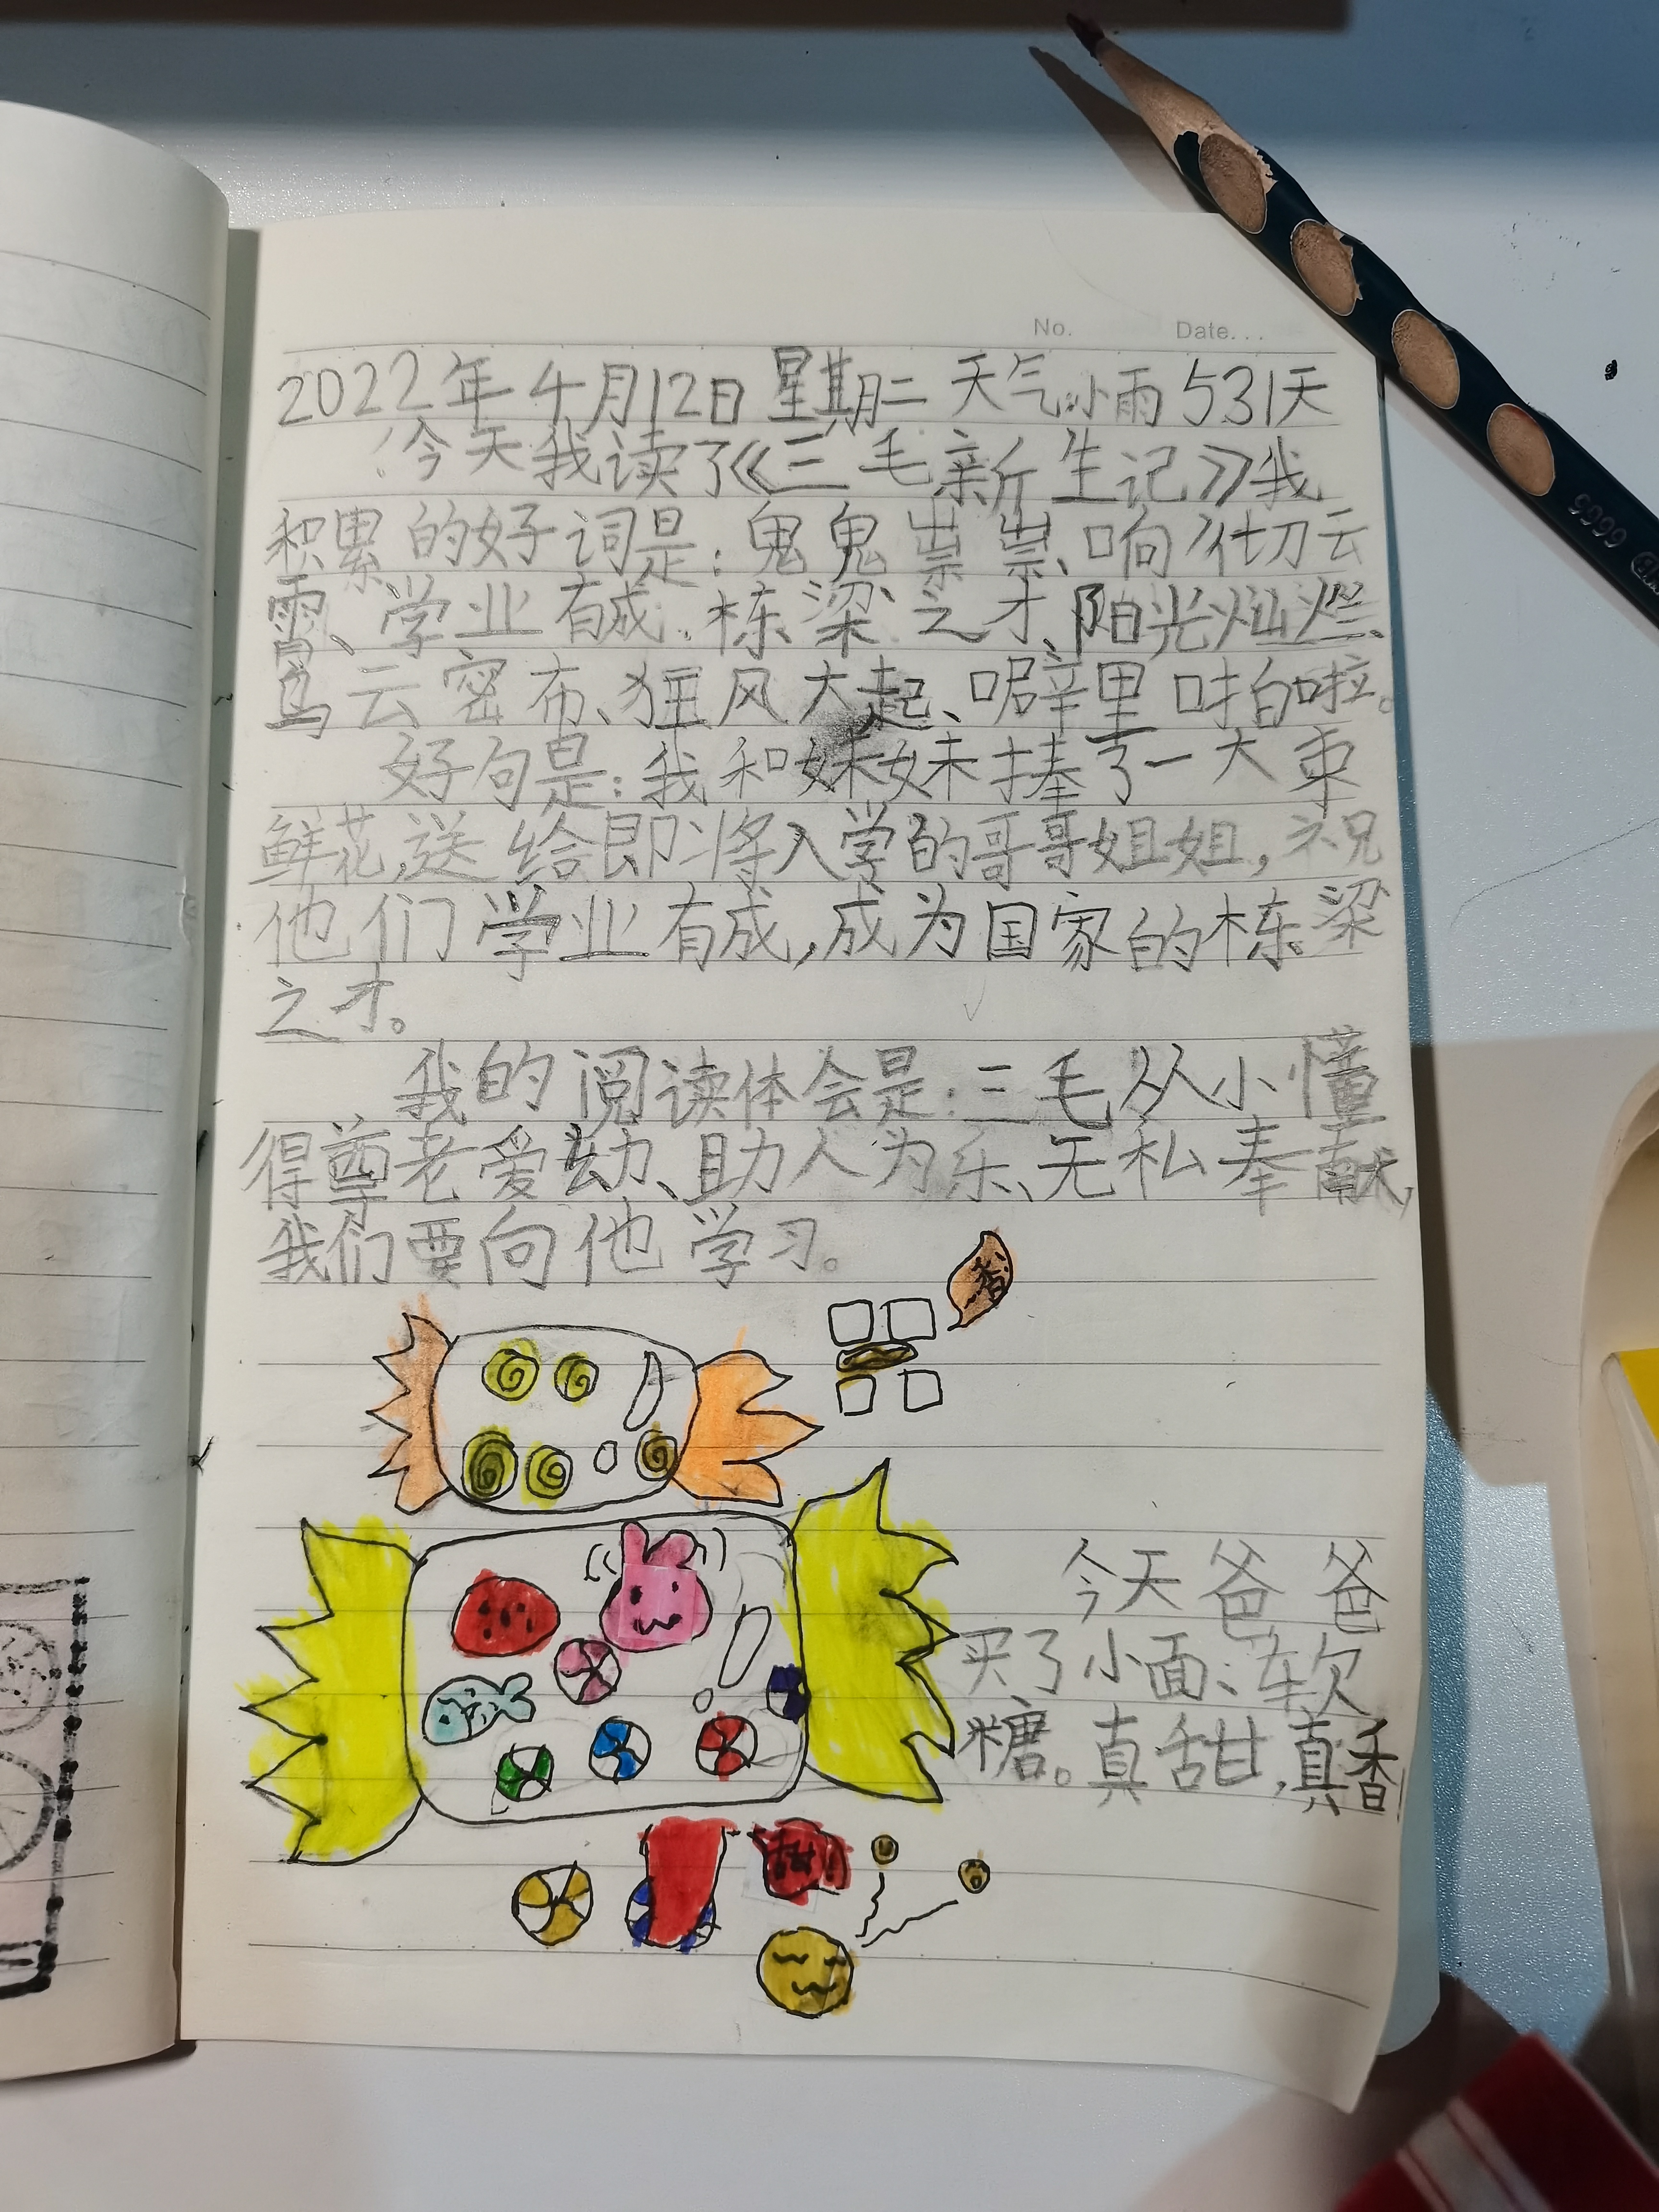 No. Date...
2022年4月12日 星期二 天气:小雨 531天
今天我读了《三毛新生记》我
积累的好词是：鬼鬼祟祟、响彻云
霄、学业有成、栋梁之才、阳光灿烂、
乌云密布、狂风大起、噼里啪啦。
好句是：我和妹妹捧了一大束
鲜花，送给即将入学的哥哥姐姐，祝
他们学业有成，成为国家的栋梁
之才。
我的阅读体会是：三毛从小懂
得尊老爱幼、助人为乐、无私奉献，
我们要向他学习。
香
今天爸爸
买了小面、软
糖。真甜，真香！
9995